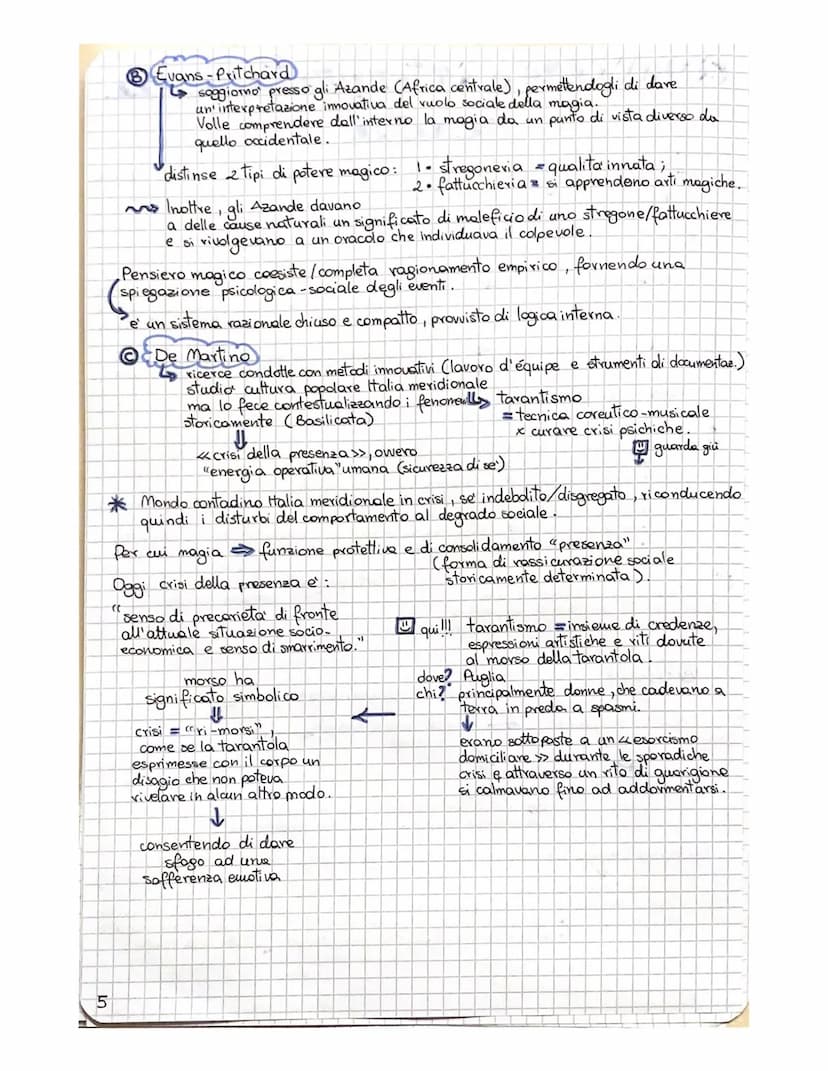 B Evans-Pritchard
↳ soggiornò presso gli Azande (Africa centrale), permettendogli di dare
un'interpretazione innovativa del ruolo sociale della magia.
Volle comprendere dall'interno la magia da un punto di vista diverso da
quello occidentale.
distinse 2 tipi di potere magico: 1• stregoneria = qualità innata;
2• fattucchieria = si apprendono arti magiche.
Inoltre, gli Azande davano
a delle cause naturali un significato di maleficio di uno stregone/fattucchiere
e si rivolgevano a un oracolo che individuava il colpevole.
Pensiero magico coesiste/completa ragionamento empirico, fornendo una
spiegazione psicologica-sociale degli eventi.
è un sistema razionale chiuso e compatto, provvisto di logica interna.
C De Martino
↳ ricerce condotte con metodi innovativi (lavoro d'équipe e strumenti di documentaz.)
studiò cultura popolare Italia meridionale
ma lo fece contestualizzando i fenomeni → tarantismo
storicamente (Basilicata)
= tecnica coreutico-musicale
x curare crisi psichiche.
⇓
guarda giù
<<crisi della presenza>>, ovvero
"energia operativa" umana (sicurezza di sé)
* Mondo contadino Italia meridionale in crisi, s'è indebolito/disgregato, riconducendo
quindi i disturbi del comportamento al degrado sociale.
Per cui magia ⇒ funzione protettiva e di consolidamento "presenza"
(forma di rassicurazione sociale
storicamente determinata).
Oggi crisi della presenza è:
"senso di precarietà di fronte
all'attuale situazione socio-
economica e senso di smarrimento."
qui!!! tarantismo = insieme di credenze,
espressioni artistiche e riti dovute
al morso della tarantola.
dove? Puglia
chi? principalmente donne, che cadevano a
terra in preda a spasmi.
↓
erano sottoposte a un <<esorcismo
domiciliare>> durante le sporadiche
crisi e attraverso un rito di guarigione
si calmavano fino ad addormentarsi.
←
morso ha
significato simbolico
⇓
crisi = "ri-morsi",
come se la tarantola
esprimesse con il corpo un
disagio che non poteva
rivelare in alcun altro modo.
↓
consentendo di dare
sfogo ad una
sofferenza emotiva
5